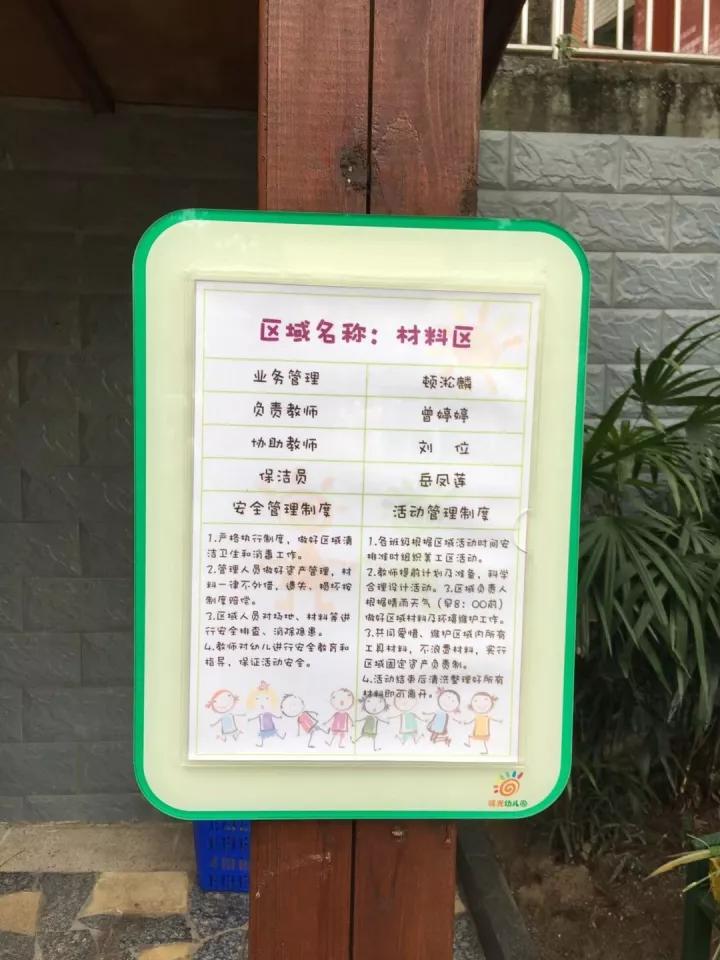 区域名称：材料区
业务管理 顿淞麟
负责教师 曾婷婷
协助教师 刘 位
保洁员 岳凤莲
安全管理制度 活动管理制度
1.严格执行制度，做好区域清
洁卫生和消毒工作。
2.管理人员做好资产管理，材
料一律不外借，遗失、损坏按
制度赔偿。
3.区域人员对场地、材料等进
行安全排查、消除隐患。
4.教师对幼儿进行安全教育和
指导，保证活动安全。
1.各班级根据区域活动时间安
排准时组织美工区活动。
2.教师提前计划及准备，科学
合理设计活动。3.区域负责人
根据晴雨天气（早8：00前）
做好区域材料及环境维护工作。
3.共同爱惜、维护区域内所有
工具材料，不浪费材料，实行
区域固定资产负责制。
4.活动结束后清洗整理好所有
材料即可离开。
幼儿园